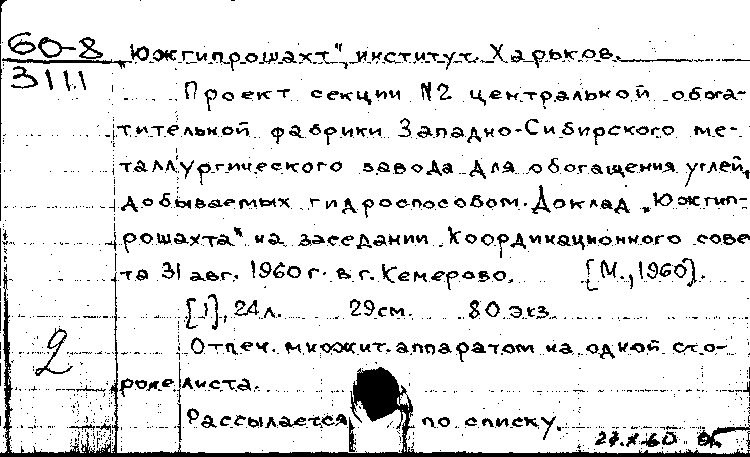 60-8
3111
„Южгипрошахт", институт. Харьков.
Проект секции №2 центральной обога-
тительной фабрики Западно-Сибирского ме-
таллургического завода для обогащения углей,
добываемых гидроспособом. Доклад „Южгип-
рошахта" на заседании Координационного сове
та 31 авг. 1960 г. в г. Кемерово. [М., 1960].
[1], 24 л. 29 см. 80 экз.
2
Отпеч. множит. аппаратом на одной сто-
роне листа.
Рассылается по списку.
27.X.60